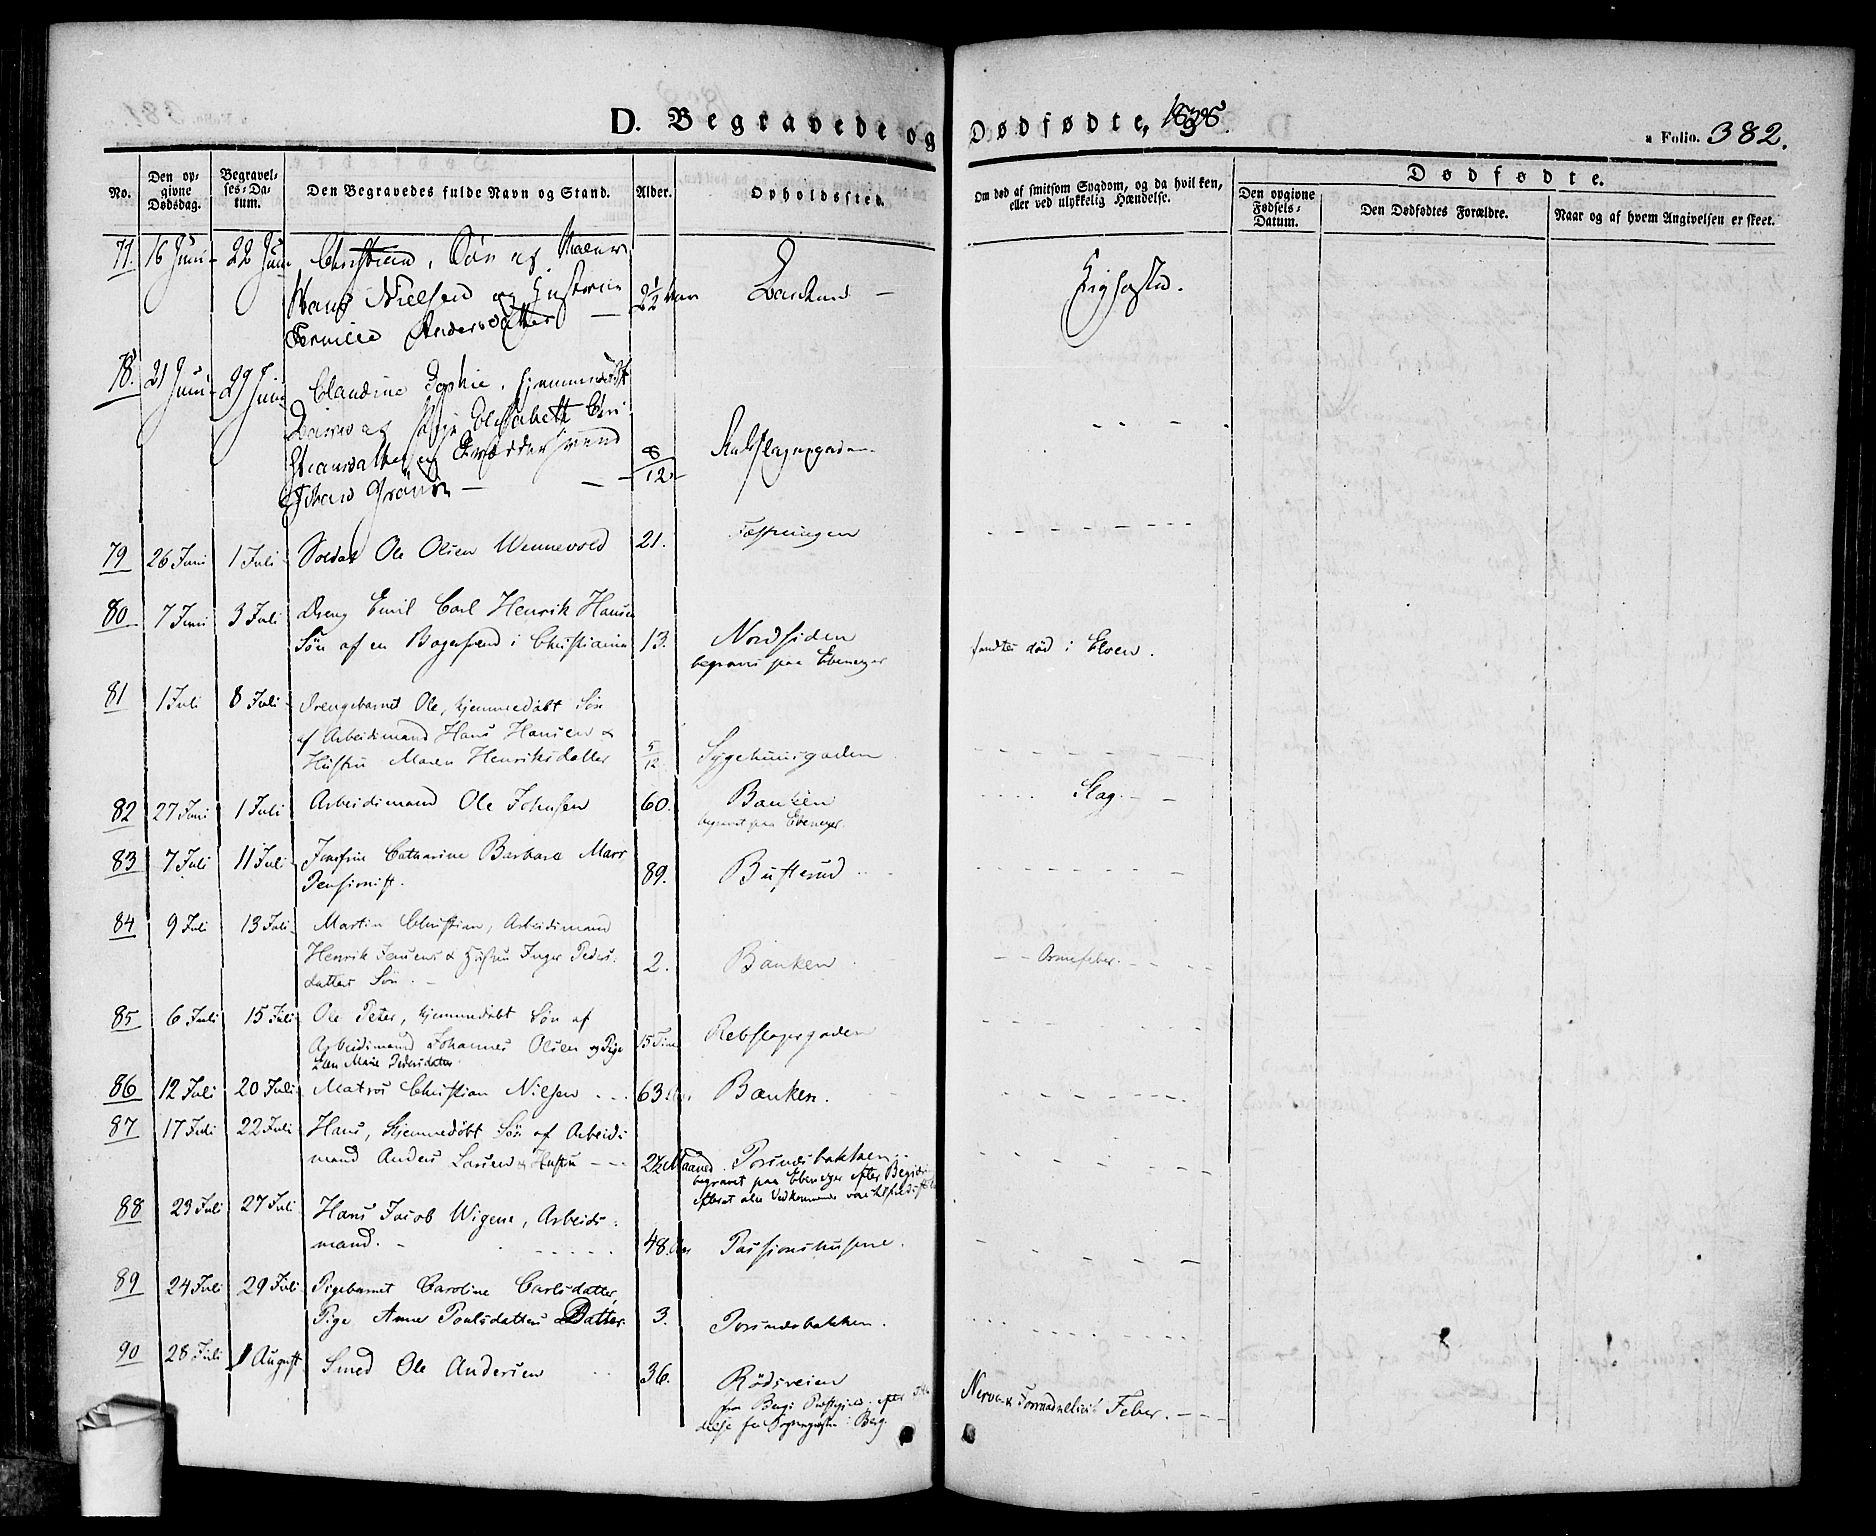 D. Begravede og Dødfødte, 1838.
a Folio. 382.
No. Den opgivne Dødsdag. Begravelses-Datum. Den Begravedes fulde Navn og Stand. Alder. Opholdssted. Om død af smitsom Sygdom, og da hvilken, eller ved ulykkelig Hændelse. Dødfødte.
Den opgivne Fødsels-Datum. Den Dødfødtes Forældre. Naar og af hvem Angivelsen er skeet.
77. 16 Juni 22 Juni Christian, Søn af
Hans Nielsen og Hustrue 2½ Aar Banken
Pernille Andersdatter
78. 21 Juni 29 Juni Claudine Sophie, hjemmedøbt
Elisabeth Chri
stiansdatter og
8/12
79 26 Juni 1 Juli Soldat Ole Olsen Wennevold 21. Fæstningen
80 7 Juni 3 Juli Dreng Emil Carl Henrik Hansen
Søn af en Bagersvend i Christiania 13. Nordsiden
begravet paa Ebenezer fandtes død i Elven.
81 1 Juli 8 Juli Drengebarnet Ole, hjemmedøbt Søn
af Arbeidsmand Hans Hansen &
Hustru Maren Henriksdatter 5/12 Sygehuusgaden
82 27 Juni 1 Juli Arbeidsmand Ole Johnsen 60. Banken Slag.
begravet paa Ebenezer.
83 7 Juli 11 Juli Jomfrue Catharine Barbara Marr
Pensionist. 89. Busterud
84 9 Juli 13 Juli Martin Christian, Arbeidsmand
Henrik Jensens & Hustru Inger Peders-
datters Søn. 2. Banken Ormefeber.
85 6 Juli 15 Juli Ole Peter, hjemmedøbt Søn af
Arbeidsmand Johannes Olsen og Pige 15 Timer Rebslagergaden
Ellen Marie Pedersdatter
86 12 Juli 20 Juli Matros Christian Nilsen 63 Aar Banken.
87 17 Juli 22 Juli Hans, hjemmedøbt Søn af Arbeids
mand Anders Larsen & Hustru 2½ Maaned. Torsnæsbakken
begravet paa Ebenezer efter Begiæring
88 23 Juli 27 Juli Hans Jacob Wigene, Arbeids-
mand. 48 Aar Passionshusene.
89 24 Juli 29 Juli Pigebarnet Caroline Carlsdatter,
Pige Anne Poulsdatters Datter. 3. Torsnæsbakken.
90 28 Juli 1 August Smed Ole Andersen 36. Rødsveien
fra Bergs Præstegield, efter
delse fra Sognepræsten i Berg. Nerve- & Feber.